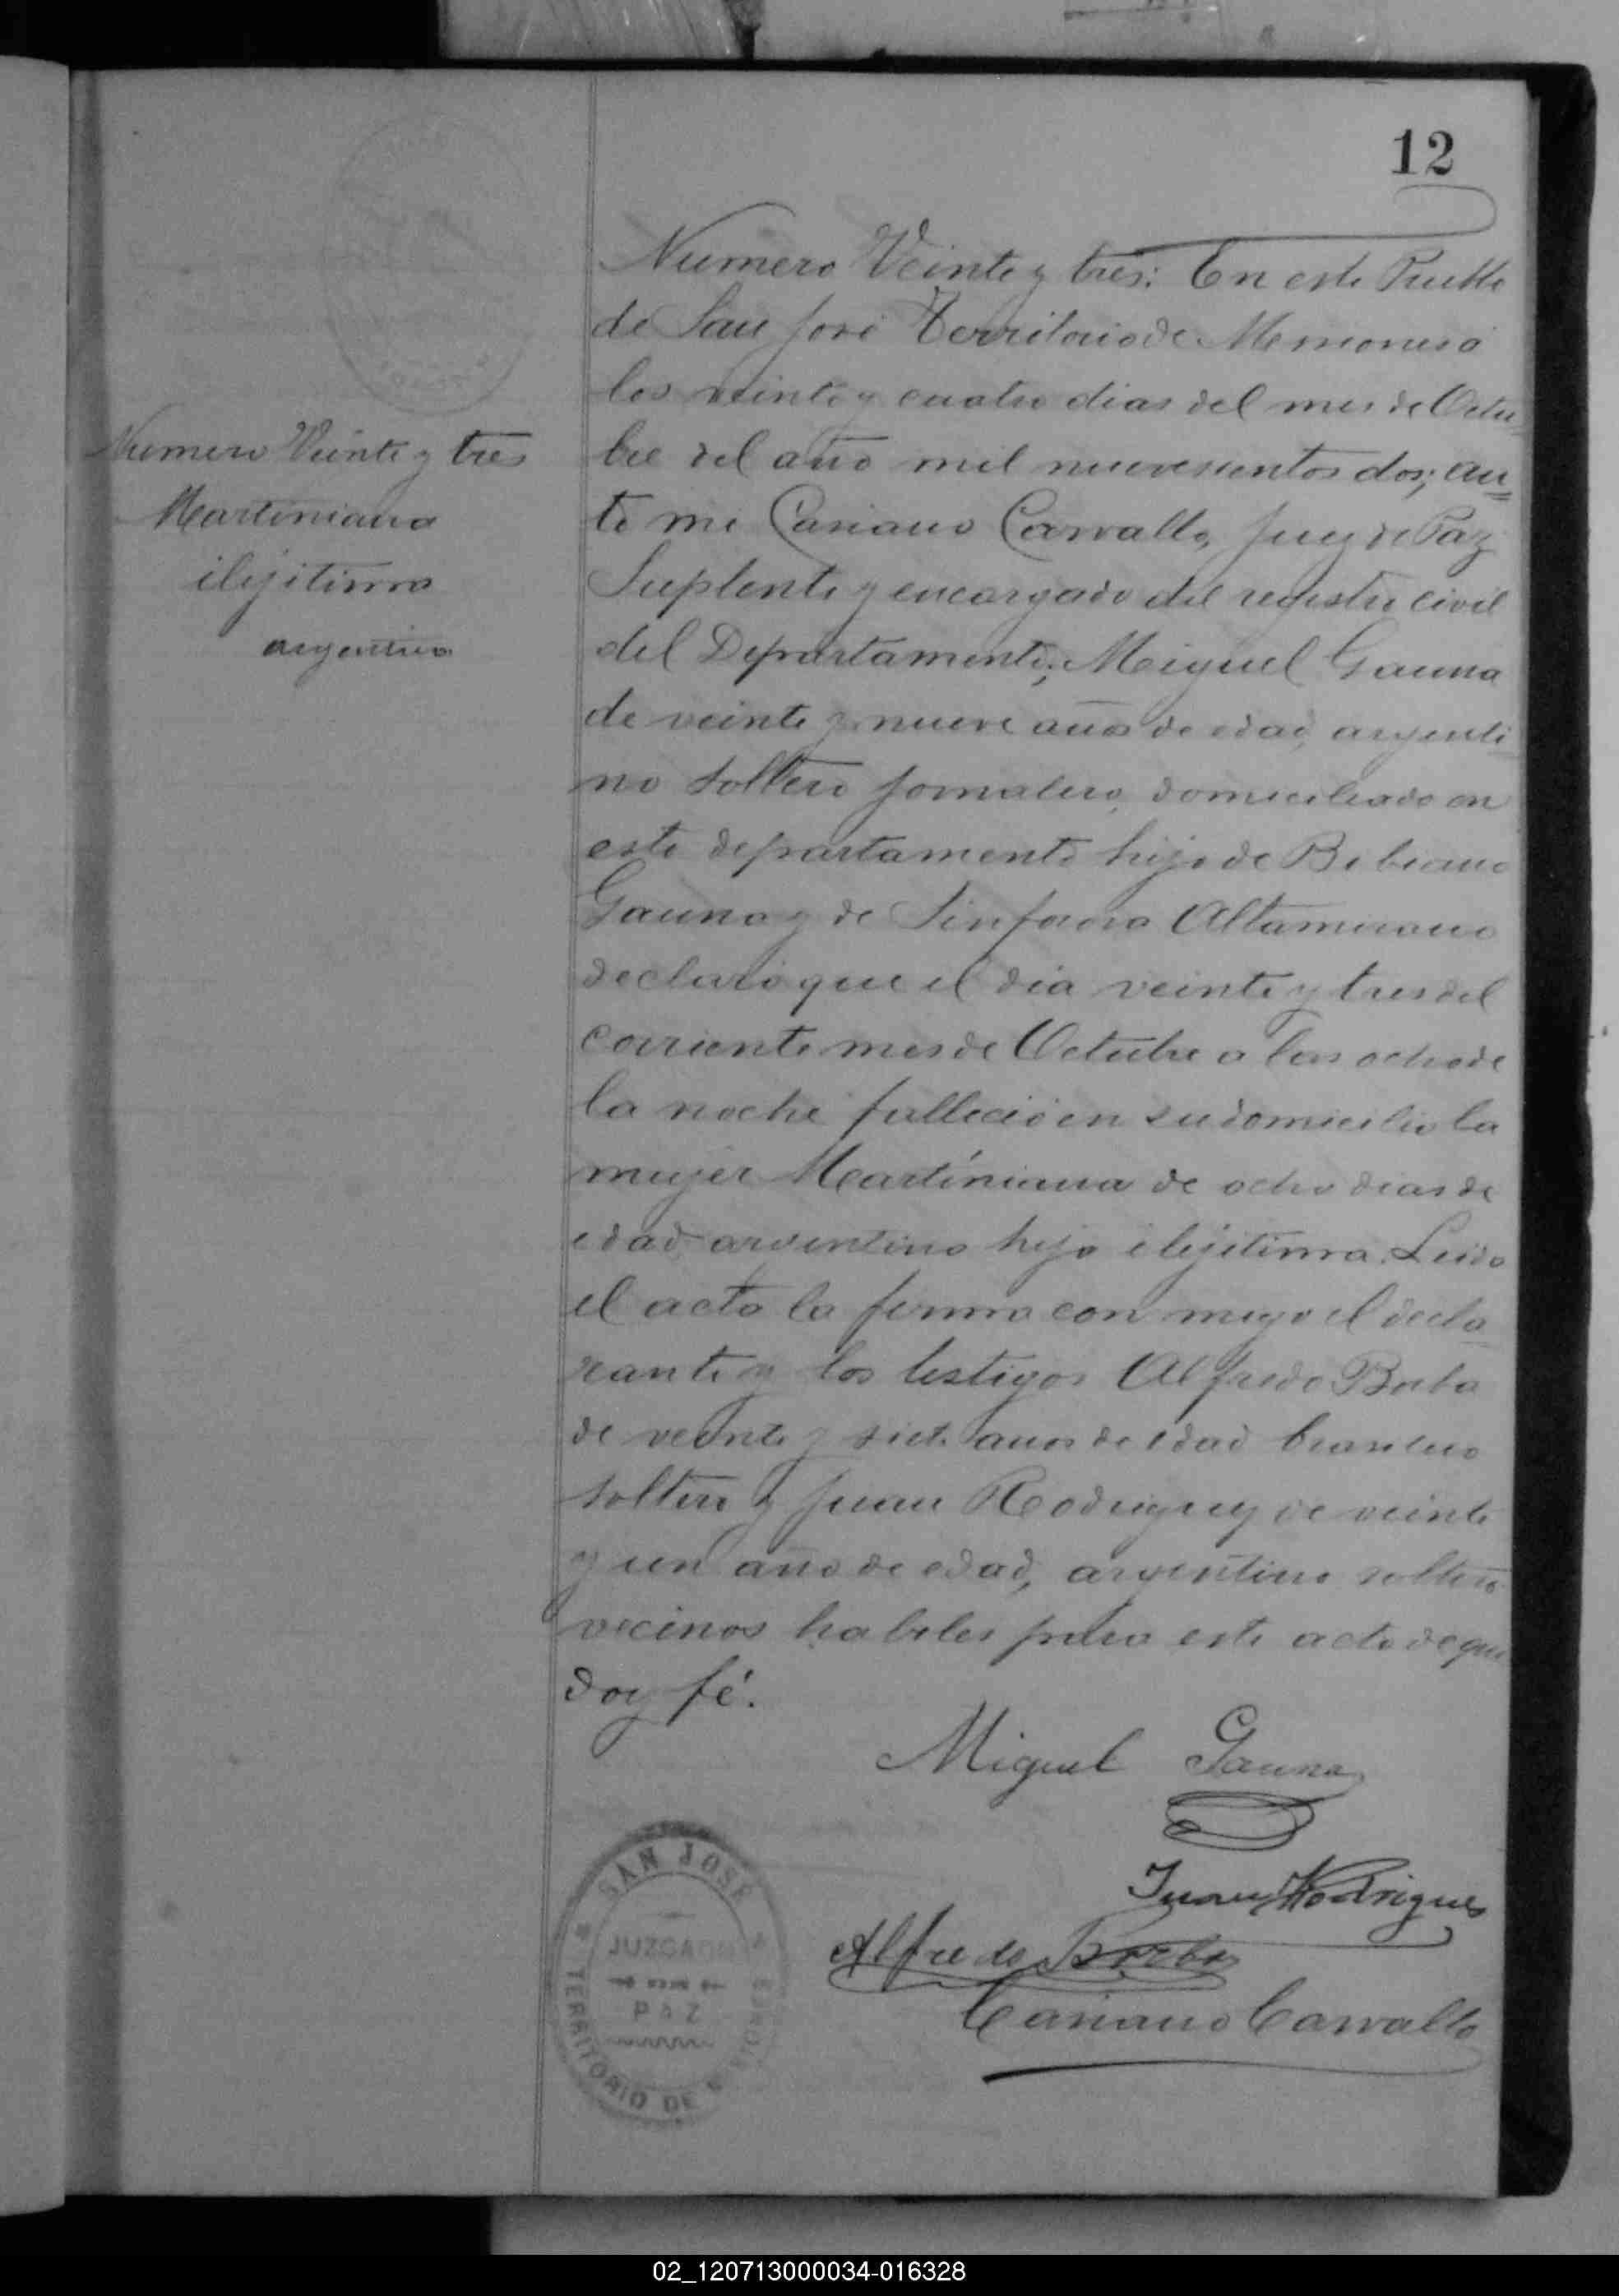 12
Numero Veinte y tres: En este Pueblo
de San José Territorio de Misiones a
los veinte y cuatro dias del mes de Octu
bre del año mil nuevesientos dos; an=
te mi Casiano Carvallo, Juez de Paz
Suplente y encargado del registro civil
del Departamento; Miguel Gauna
de veinte y nueve años de edad, argenti
no soltero jornalero, domiciliado en
este departamento hijo de Bibiano
Gauna y de Sinforosa Altamirano
declaró que el dia veinte y tres del
corriente mes de Octubre a las ocho de
la noche fallecio en su domicilio la
mujer Martiniana de ocho dias de
edad argentina hija ilejitima. Leida
el acta la firma con migo el decla
rante y los testigos Alfredo Borba
de veinte y siete años de edad brasilero
soltero y Juan Rodriguez de veinte
y un año de edad, argentino soltero
vecinos habiles para este acto de que
doy fé.
Numero Veinte y tres
Martiniana
ilejitima
argentina
Miguel Gauna
Juan Rodrigues
Alfredo Borba
Casiano Carvallo
SAN JOSE
JUZGADO
DE
PAZ
TERRITORIO DE MISIONES
02_120713000034-016328